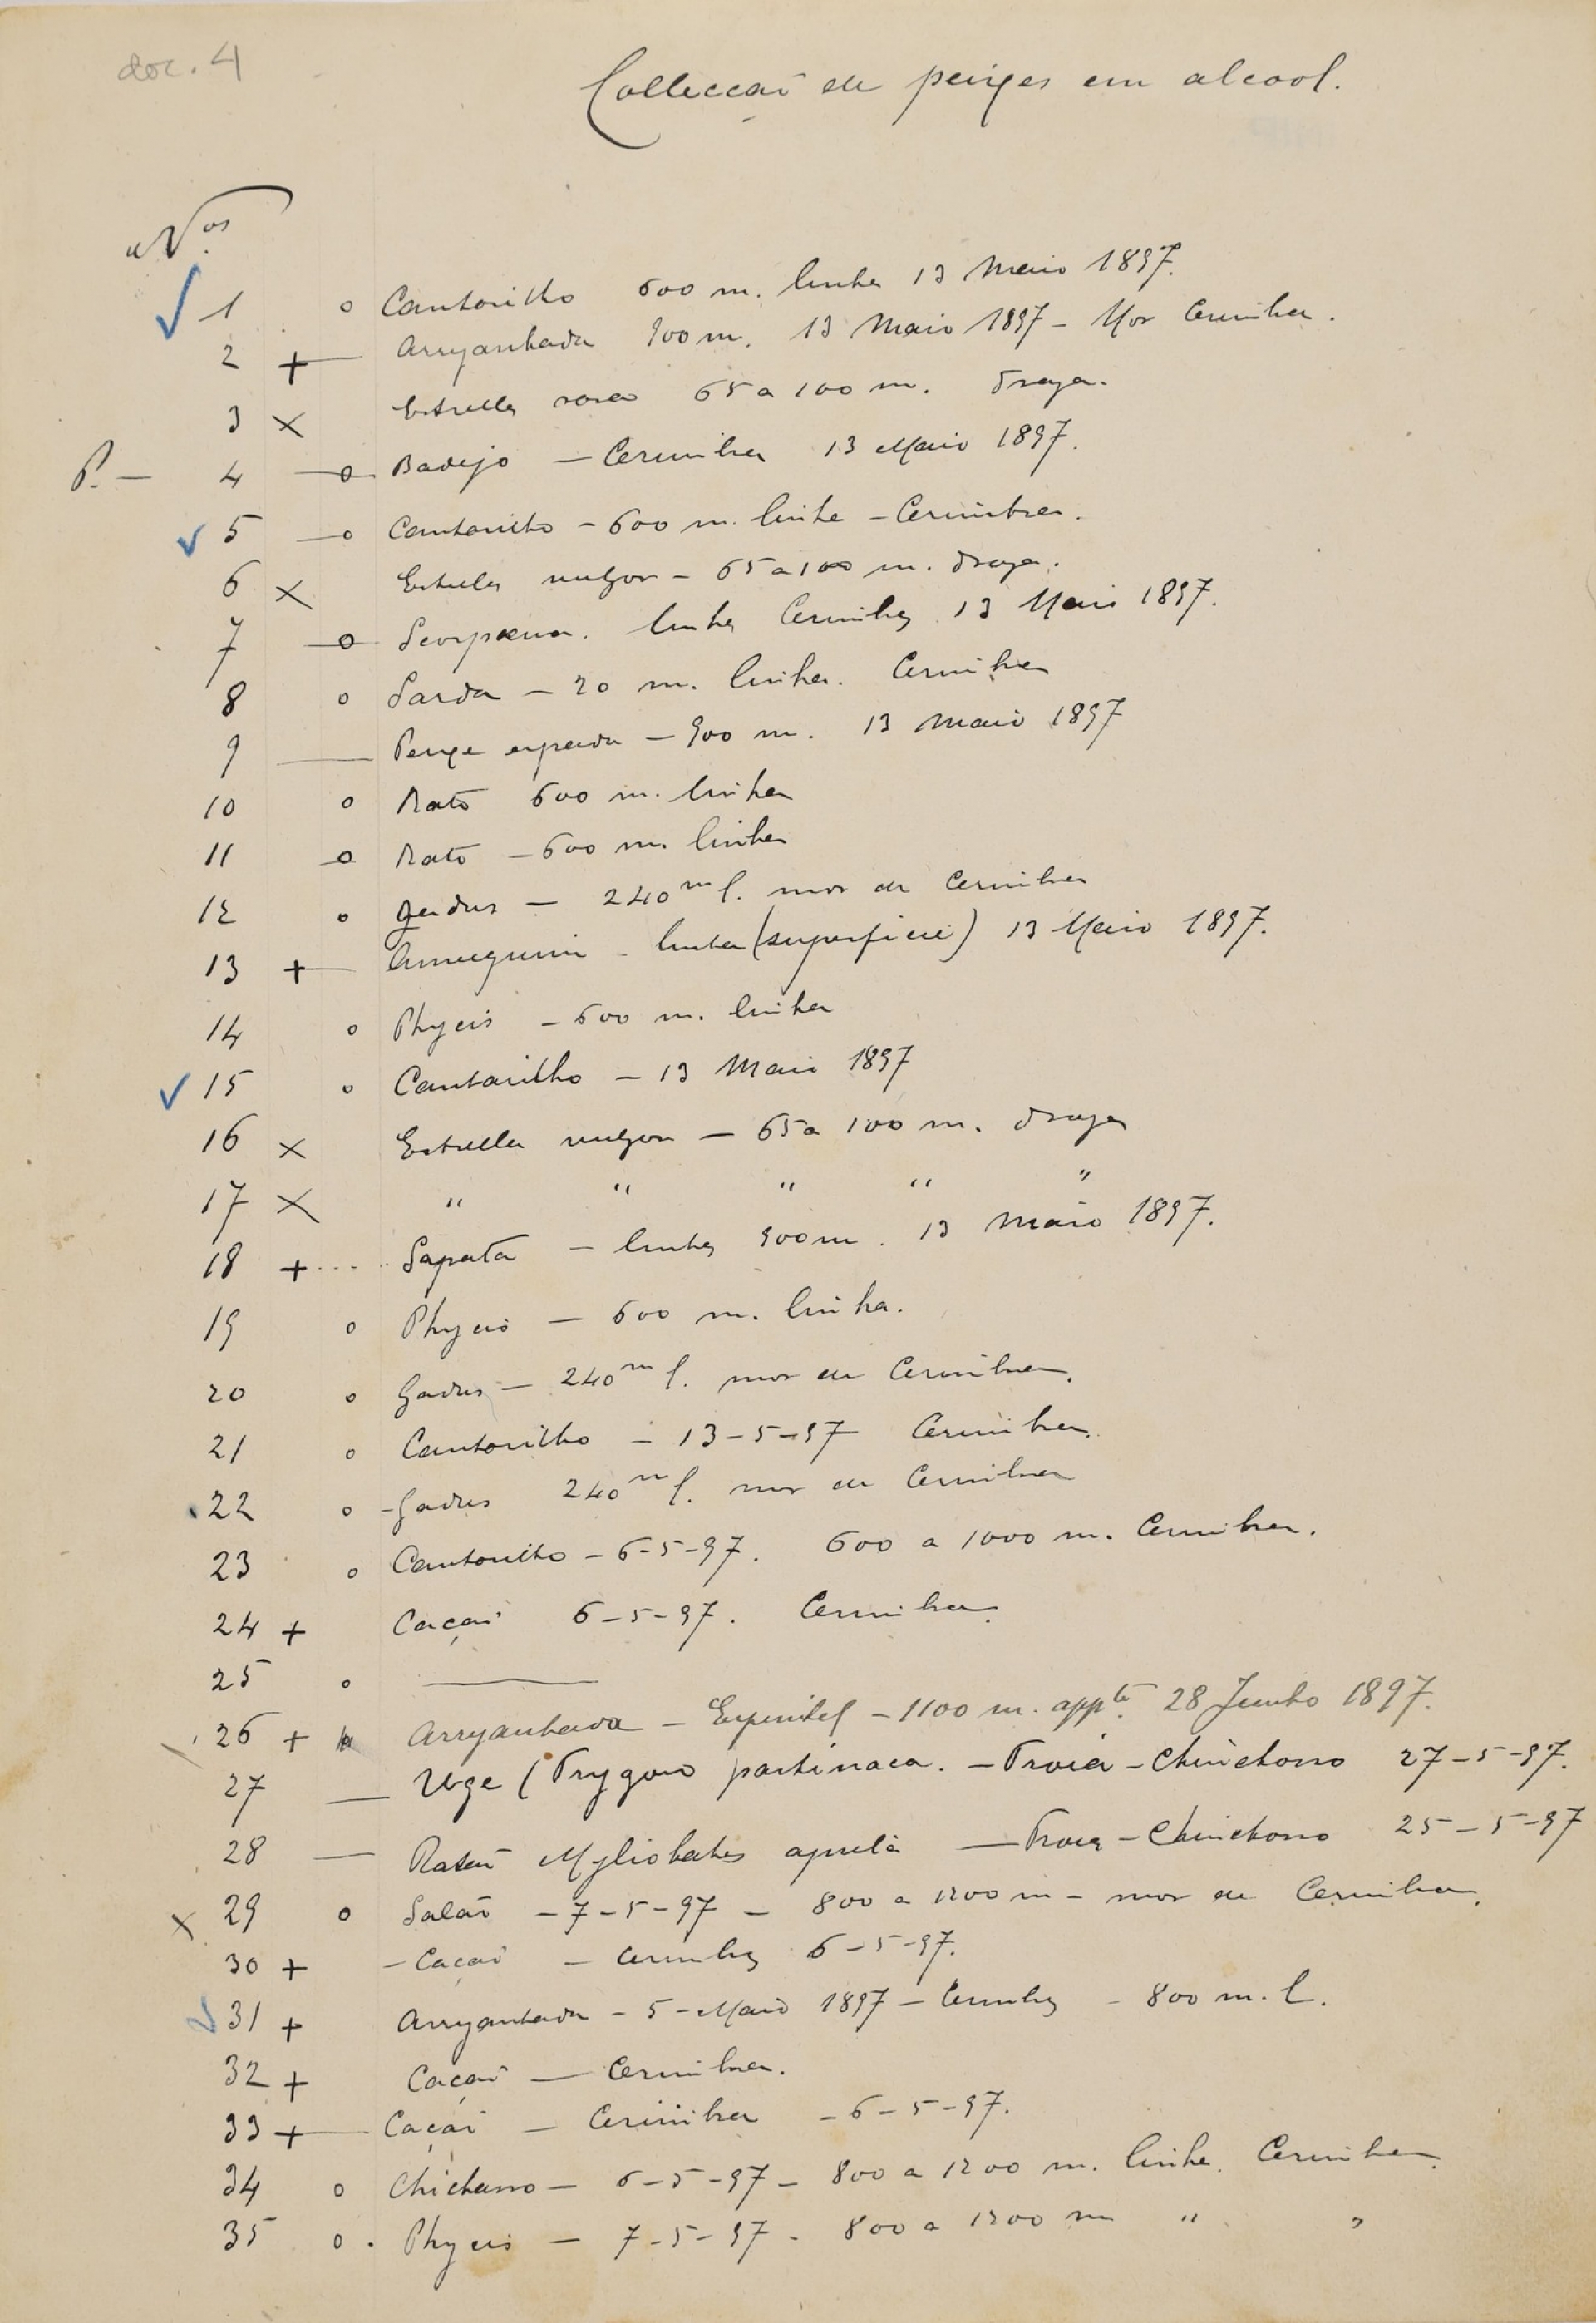 doc. 4
Collecção de peixes em alcool.
Nos.
1 o Cantarilho 600 m. linha 13 Maio 1897.
2 + Arreganhada 900 m. 13 Maio 1897 – Mar Cezimbra.
3 x Estrella rosea 65 a 100 m. Draga.
P. – 4 – o Badejo – Cezimbra 13 Maio 1897.
5 – o Cantarilho – 600 m. linha – Cezimbra.
6 x Estrella vulgar – 65 a 100 m. draga.
7 – o Scorpaena. linha Cezimbra 13 Maio 1897.
8 o Sarda – 20 m. linha. Cezimbra
9 — Peixe espada – 900 m. 13 Maio 1897
10 o Rato 600 m. linha
11 – o Rato – 600 m. linha
12 o Gadus – 240 m l. mar de Cezimbra
13 + Annequim – linha (superficie) 13 Maio 1897.
14 o Phycis – 600 m. linha
15 o Cantarilho – 13 Maio 1897
16 x Estrella vulgar – 65 a 100 m. draga
17 x " " " " "
18 + .... Sapata – linha 900 m. 13 Maio 1897.
19 o Phycis – 600 m. linha.
20 o Gadus – 240 m l. mar de Cezimbra.
21 o Cantarilho – 13-5-97 Cezimbra.
22 o – Gadus 240 m l. mar de Cezimbra
23 o Cantarilho – 6-5-97. 600 a 1000 m. Cezimbra.
24 + Cação 6-5-97. Cezimbra.
25 o ———
26 + Arreganhada – Espinhel – 1100 m. appte. 28 Junho 1897.
27 — Uge (Trygon pastinaca. – Troia – Chinchorro 27-5-97.
28 — Ratão Myliobates aquila — Troia – Chinchorro 25-5-97
x 29 o Salão – 7-5-97 – 800 a 1200 m – mar de Cezimbra.
30 + – Cação – Cezimbra 6-5-97.
31 + Arreganhada – 5 – Maio 1897 – Cezimbra – 800 m. l.
32 + Cação — Cezimbra.
33 + Cação – Cezimbra – 6-5-97.
34 o Chicharro – 6-5-97 – 800 a 1200 m. linha. Cezimbra.
35 o . Phycis – 7-5-97 – 800 a 1200 m " "